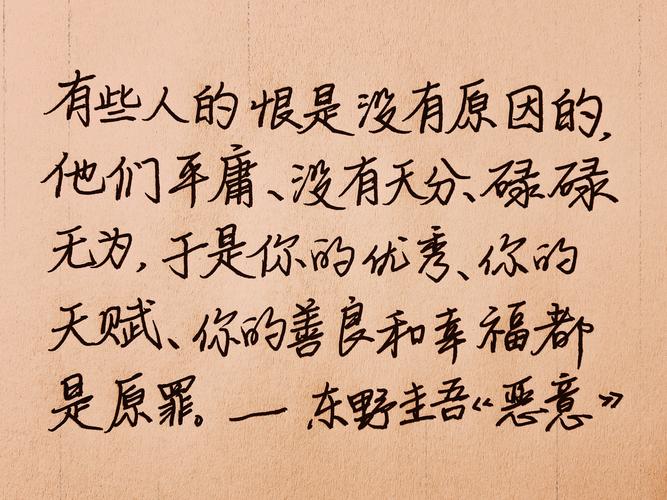 有些人的恨是没有原因的,
他们平庸、没有天分、碌碌
无为,于是你的优秀、你的
天赋、你的善良和幸福都
是原罪。— 东野圭吾《恶意》